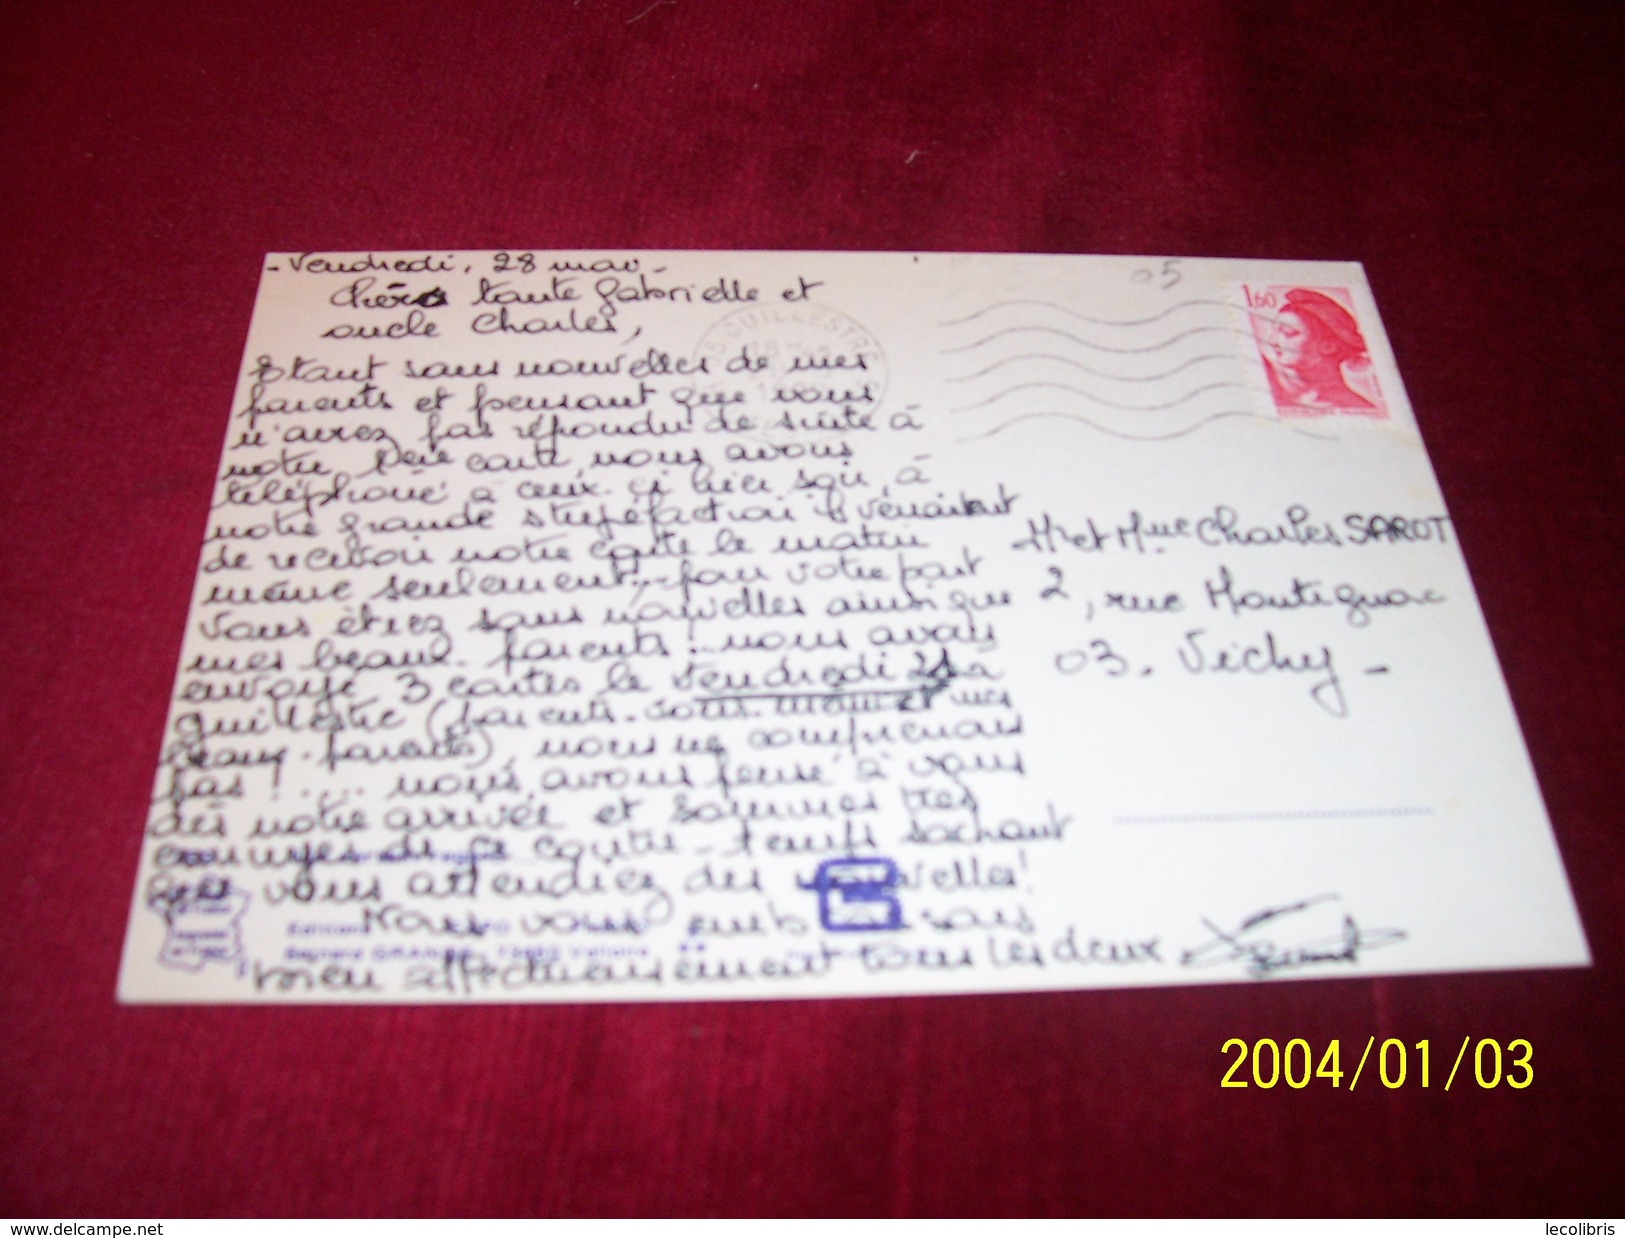 - Vendredi, 28 mai -
Chers tante Gabrielle et
oncle Charles,
Etant sans nouvelles de mes
parents et pensant que vous
n'avez pas répondu de suite à
notre 1ère carte, nous avons
téléphoné à ceux-ci hier soir, à
notre grande stupéfaction ils venaient
de recevoir notre carte le matin
même seulement, par votre part
vous étiez sans nouvelles ainsi que
mes beaux-parents! nous avons
envoyé 3 cartes le Vendredi 21 à
Guillestre (parents-vous-même et mes
beaux-parents), nous ne comprenons
pas!.... nous avons pensé à vous
dès notre arrivée et sommes très
ennuyés de ce contre-temps sachant
que vous attendiez des nouvelles!
Nous vous embrassons
bien affectueusement tous les deux
05 GUILLESTRE
05
1,60
Mr et Mme Charles SAROT
2, rue Montignac
03. Vichy -
2004/01/03
www.delcampe.net
lecolibris